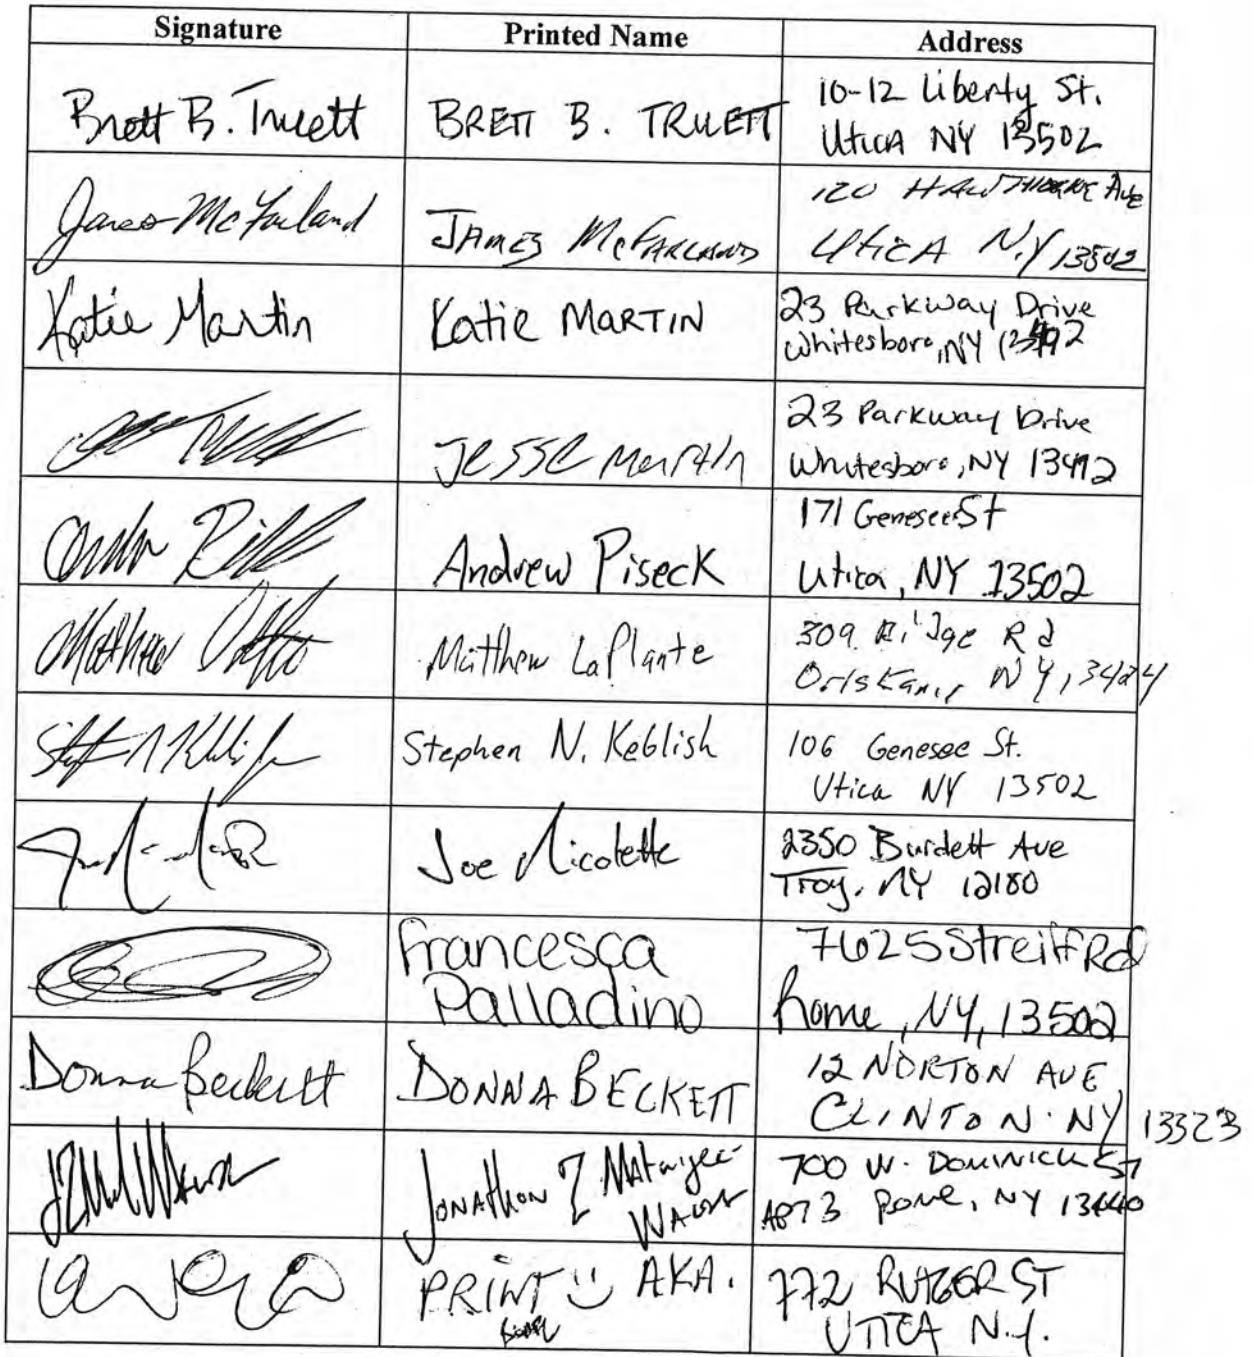 Signature Printed Name Address
Brett B. Truett BRETT B. TRUETT 10-12 Liberty St.
Utica NY 13502
James McFarland JAMES McFARLAND 120 HAWTHORNE Ave
Utica N.Y 13502
Katie Martin Katie MARTIN 23 Parkway Drive
Whitesboro, NY 13492
Jesse Martin 23 Parkway Drive
Whitesboro, NY 13492
Andrew Piseck 171 Genesee St
Utica, NY 13502
Matthew Matthew LaPlante 309 Ridge Rd
Oriskany NY, 3424
Stephen N. Keblish 106 Genesee St.
Utica NY 13502
Joe Nicolette 2350 Burdett Ave
Troy, NY 12180
Francesca 7625 Streiff Rd
Palladino Rome, NY, 13502
Donna Beckett DONNA BECKETT 12 NORTON AVE
CLINTON NY 13323
JONATHON 700 W. DOMINICK ST
APT 3 Rome, NY 13440
PRINT AKA. 772 RUTGER ST
UTICA N.Y.